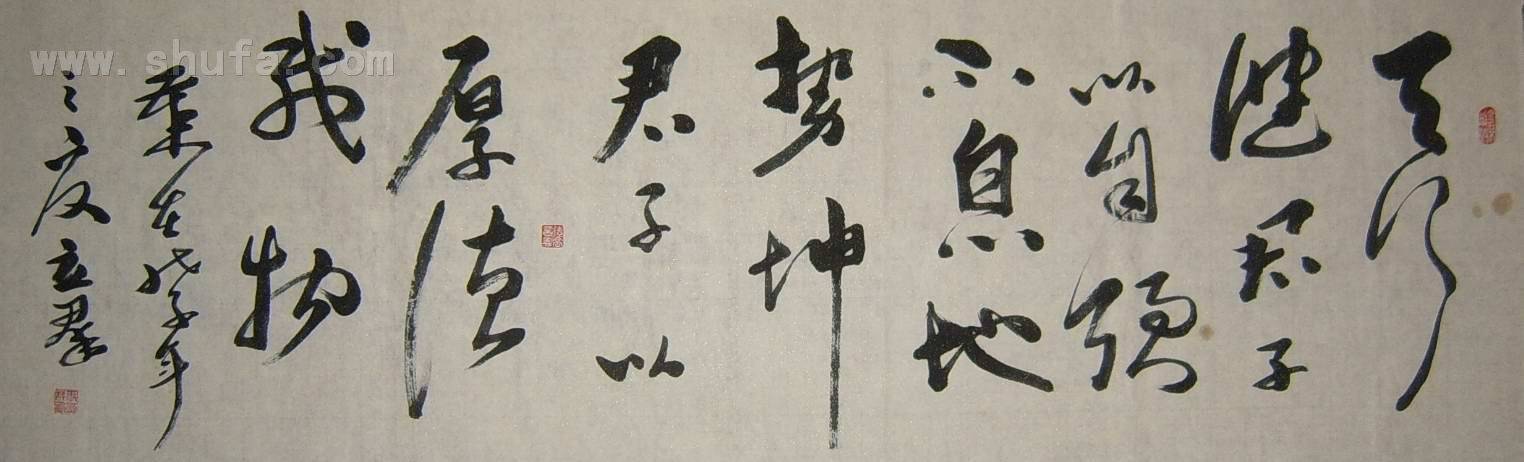 天行
健君子
以自強
不息地
势坤
君子以
厚德
载物
歲在戊子年
之夏立群
www.shufa.com